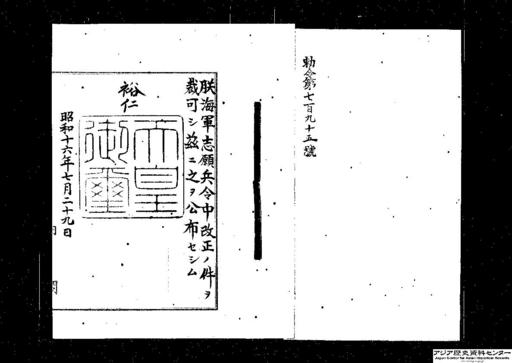 勅令第七百九十五號
朕海軍志願兵令中改正ノ件ヲ
裁可シ茲ニ之ヲ公布セシム
裕仁
天皇
御璽
昭和十六年七月二十九日
アジア歴史資料センター
Japan Center for Asian Historical Records